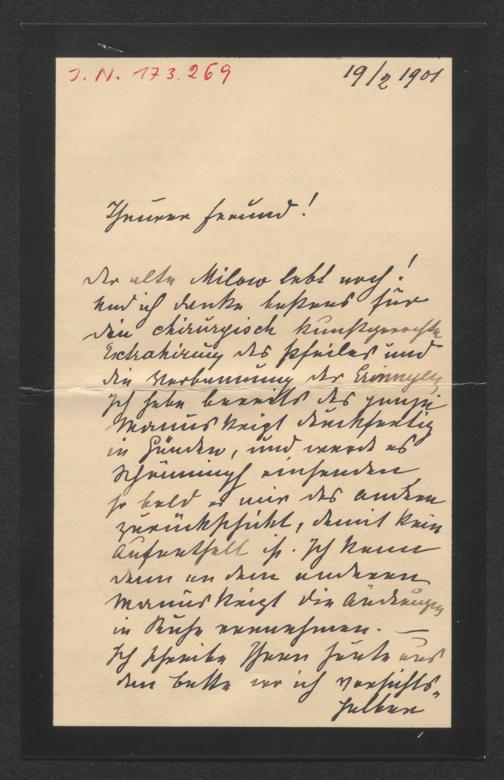 I. N. 173.269
19/2 1901
Theurer Freund!
Der alte Milow lebt noch!
Und ich danke bestens für
die chirurgisch kunstgerechte
Extrahirung des Pfeiles und
die Verbannung der Erinnyen
Ich habe bereits das ganze
Manuskript druckfertig
in Händen, und werde es
Schöningh einsenden
so bald er mir das andere
zurückschickt, damit kein
Aufenthalt ist. Ich kann
dann an dem anderen
Manuskript die Änderungen
in Ruhe vornehmen. —
Ich schreibe Ihnen heute aus
dem Bette wo ich vorsichts-
halber